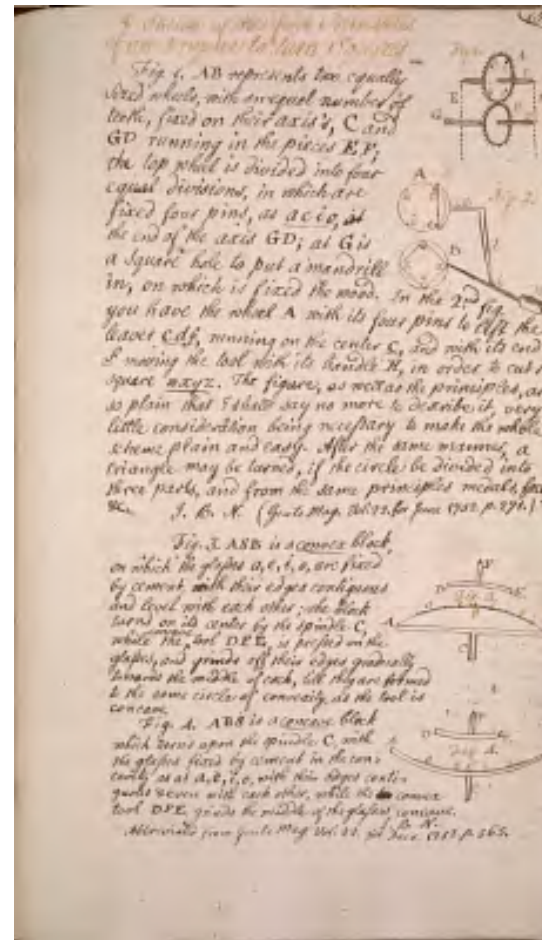 of an Engine to turn Squares
Fig. 1. AB represents two equally
sized wheels, with an equal number of
teeth, fixed on their axis's, C and
GD running in the pieces E F;
the top wheel is divided into four
equal divisions, in which are
fixed four pins, as a c i o, at
the end of the axis GD; at G is
a square hole to put a mandrill
in, on which is fixed the wood. In the 2nd fig.
you have the wheel A with its four pins to lift the
leaver c d f, running on the center C, and with its end
f moving the tool with its handle H, in order to cut a
square m x y z. The figure, as well as the principles, are
so plain that I shall say no more to describe it, very
little consideration being necessary to make the whole
scheme plain and easy. After the same manner, a
triangle may be turned, if the circle be divided into
three parts, and from the same principles medals,
&c. J. B. N. (Gents Mag. Vol. 22. for June 1752. p. 271.)
Fig. 3. ASB is a convex block,
on which the glasses a, e, i, o, are fixed
by cement, with their edges contiguous
and level with each other; the block
turns on its center by the spindle C,
while the concave tool DFE, is pressed on the
glasses, and grinds off their edges gradually
towards the middle of each, till they are formed
to the same circle of convexity, as the tool is
concave.
Fig. 4. ABS is a concave block
which turns upon the spindle C, with
the glasses fixed by cement in the con-
cavity as at a, e, i, o, with their edges conti-
guous & even with each other, while the convex
tool DFE, grinds the middle of the glasses concave.
J. B. N.
Abbreviated from Gents Mag. Vol. 22. for Decr 1752. p. 565.
Fig. 2.
A
B
E
G
A
B
F
D
E
A
Fig. 4.